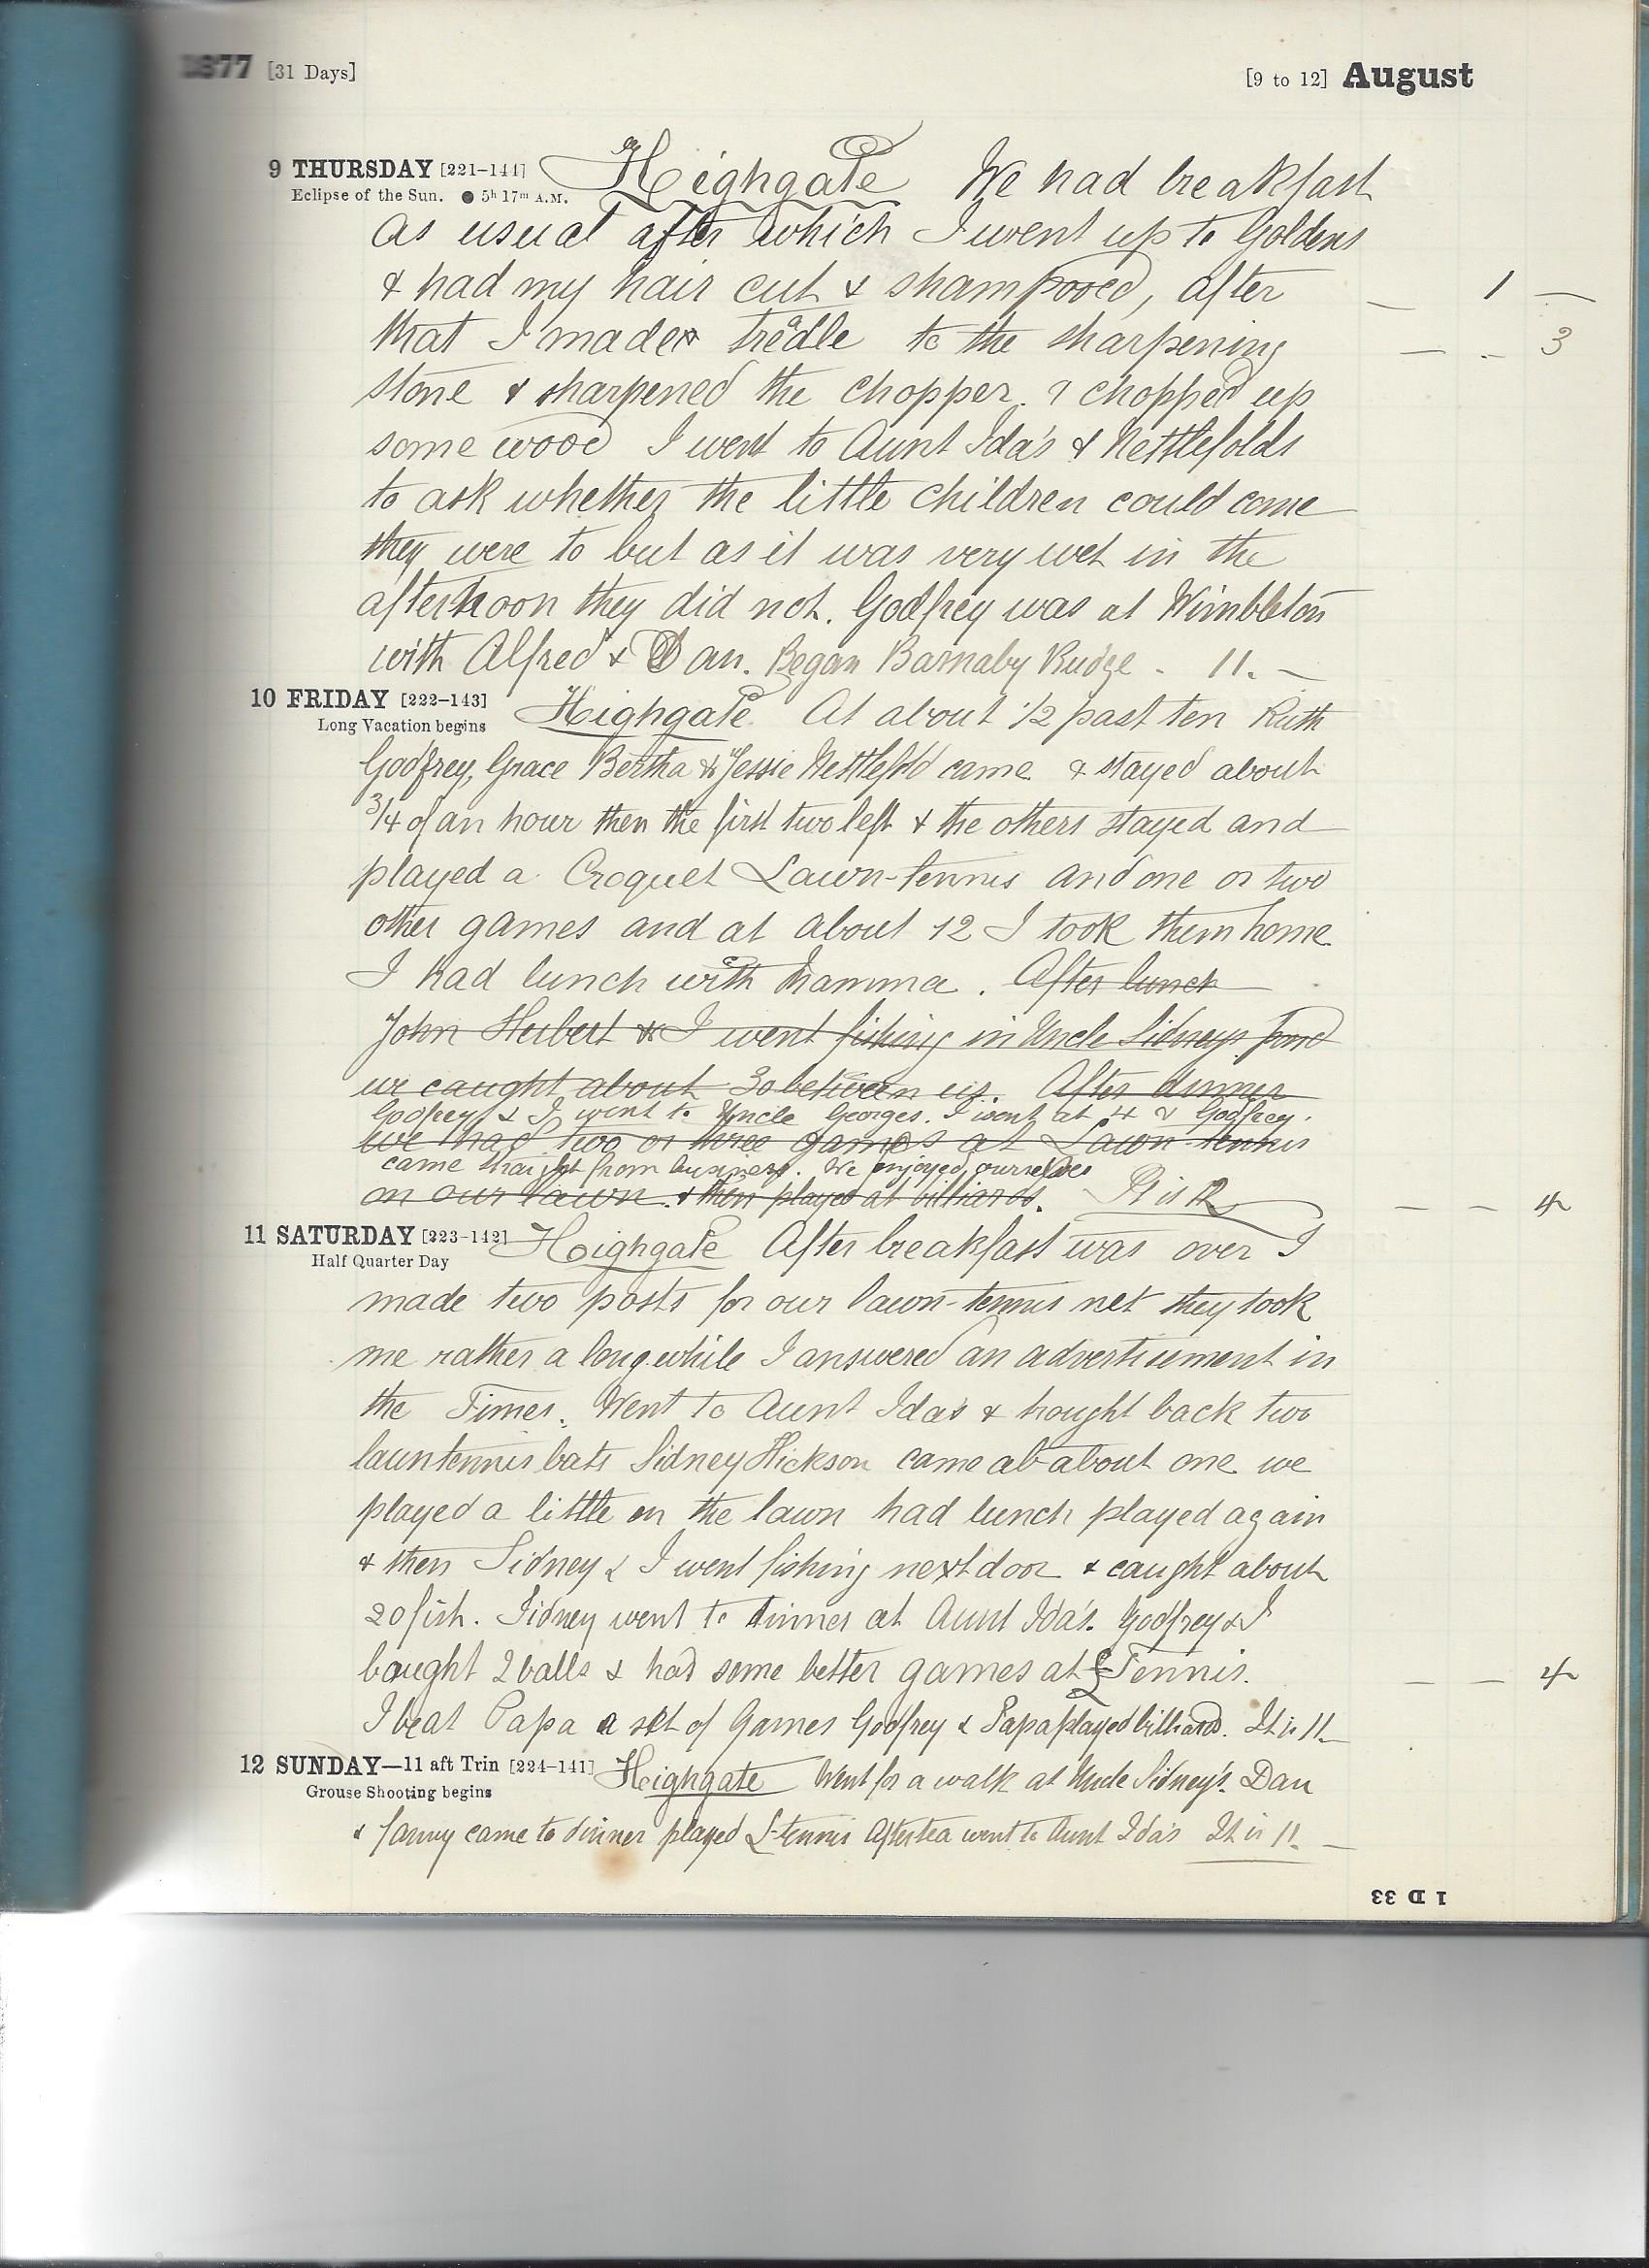 1877 [31 Days] [9 to 12] August
9 THURSDAY [221-144] Highgate We had breakfast
Eclipse of the Sun. ● 5h 17m A.M.
as usual after which I went up to Goldens
& had my hair cut & shampooed, after — 1 —
that I made a tredle to the sharpening — - 3
stone & sharpened the chopper. & chopped up
some wood I went to Aunt Ida's & Nettlefolds
to ask whether the little children could come
they were to but as it was very wet in the
afternoon they did not. Godfrey was at Wimbleton
with Alfred & Dan. Began Barnaby Rudge - 11. —
10 FRIDAY [222-143] Highgate At about 1/2 past ten Ruth
Long Vacation begins
Godfrey, Grace Bertha & Jessie Nettlefold came & stayed about
3/4 of an hour then the first two left & the others stayed and
played a Croquet Lawn-tennis and one or two
other games and at about 12 I took them home.
I had lunch with Mamma. After lunch
John Herbert & I went fishing in Uncle Sidneys pond
we caught about 30 between us. After dinner
Godfrey & I went to Uncle Georges. I went at 4 & Godfrey
we had two or three games at Lawn-tennis
came straight from business. We enjoyed ourselves
on our lawn. & then played at billiards. It is 12 — — 4
11 SATURDAY [223-142] Highgate After breakfast was over I
Half Quarter Day
made two posts for our lawn-tennis net they took
me rather a long while I answered an advertisement in
the Times. Went to Aunt Ida's & brought back two
lawntennis bats Sidney Hickson came at about one we
played a little on the lawn had lunch played again
& then Sidney & I went fishing next door & caught about
20 fish. Sidney went to dinner at Aunt Ida's. Godfrey & I
bought 2 balls & had some better games at L-Tennis. — — 4
I beat Papa a set of Games Godfrey & Papa played billiards. It is 11. —
12 SUNDAY—11 aft Trin [224-141] Highgate Went for a walk at Uncle Sidney's. Dan
Grouse Shooting begins
& Fanny came to dinner played L-tennis After tea went to Aunt Ida's It is 11. —
1 D 33